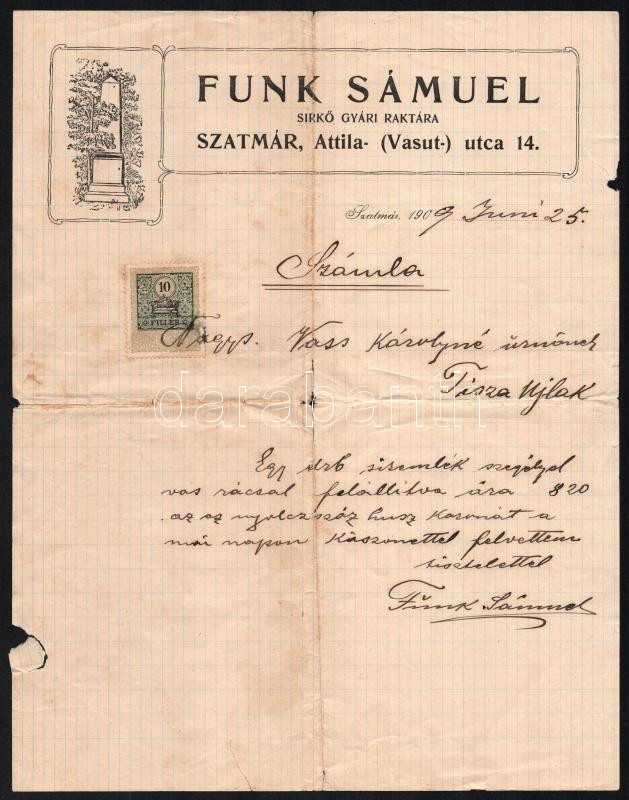 FUNK SÁMUEL
SIRKŐ GYÁRI RAKTÁRA
SZATMÁR, Attila- (Vasut-) utca 14.
Szatmár, 1909 Juni 25.
Számla
10
FILLÉR
Nagys. Vass Károlyné úrnőnek
Tisza Ujlak
darabanth
Egy drb siremlék szegélyel
vas rácsal felállitva ára 820
az az nyolczszáz husz koronát a
mai napon köszonettel felvettem
tisztelettel
Funk Sámuel